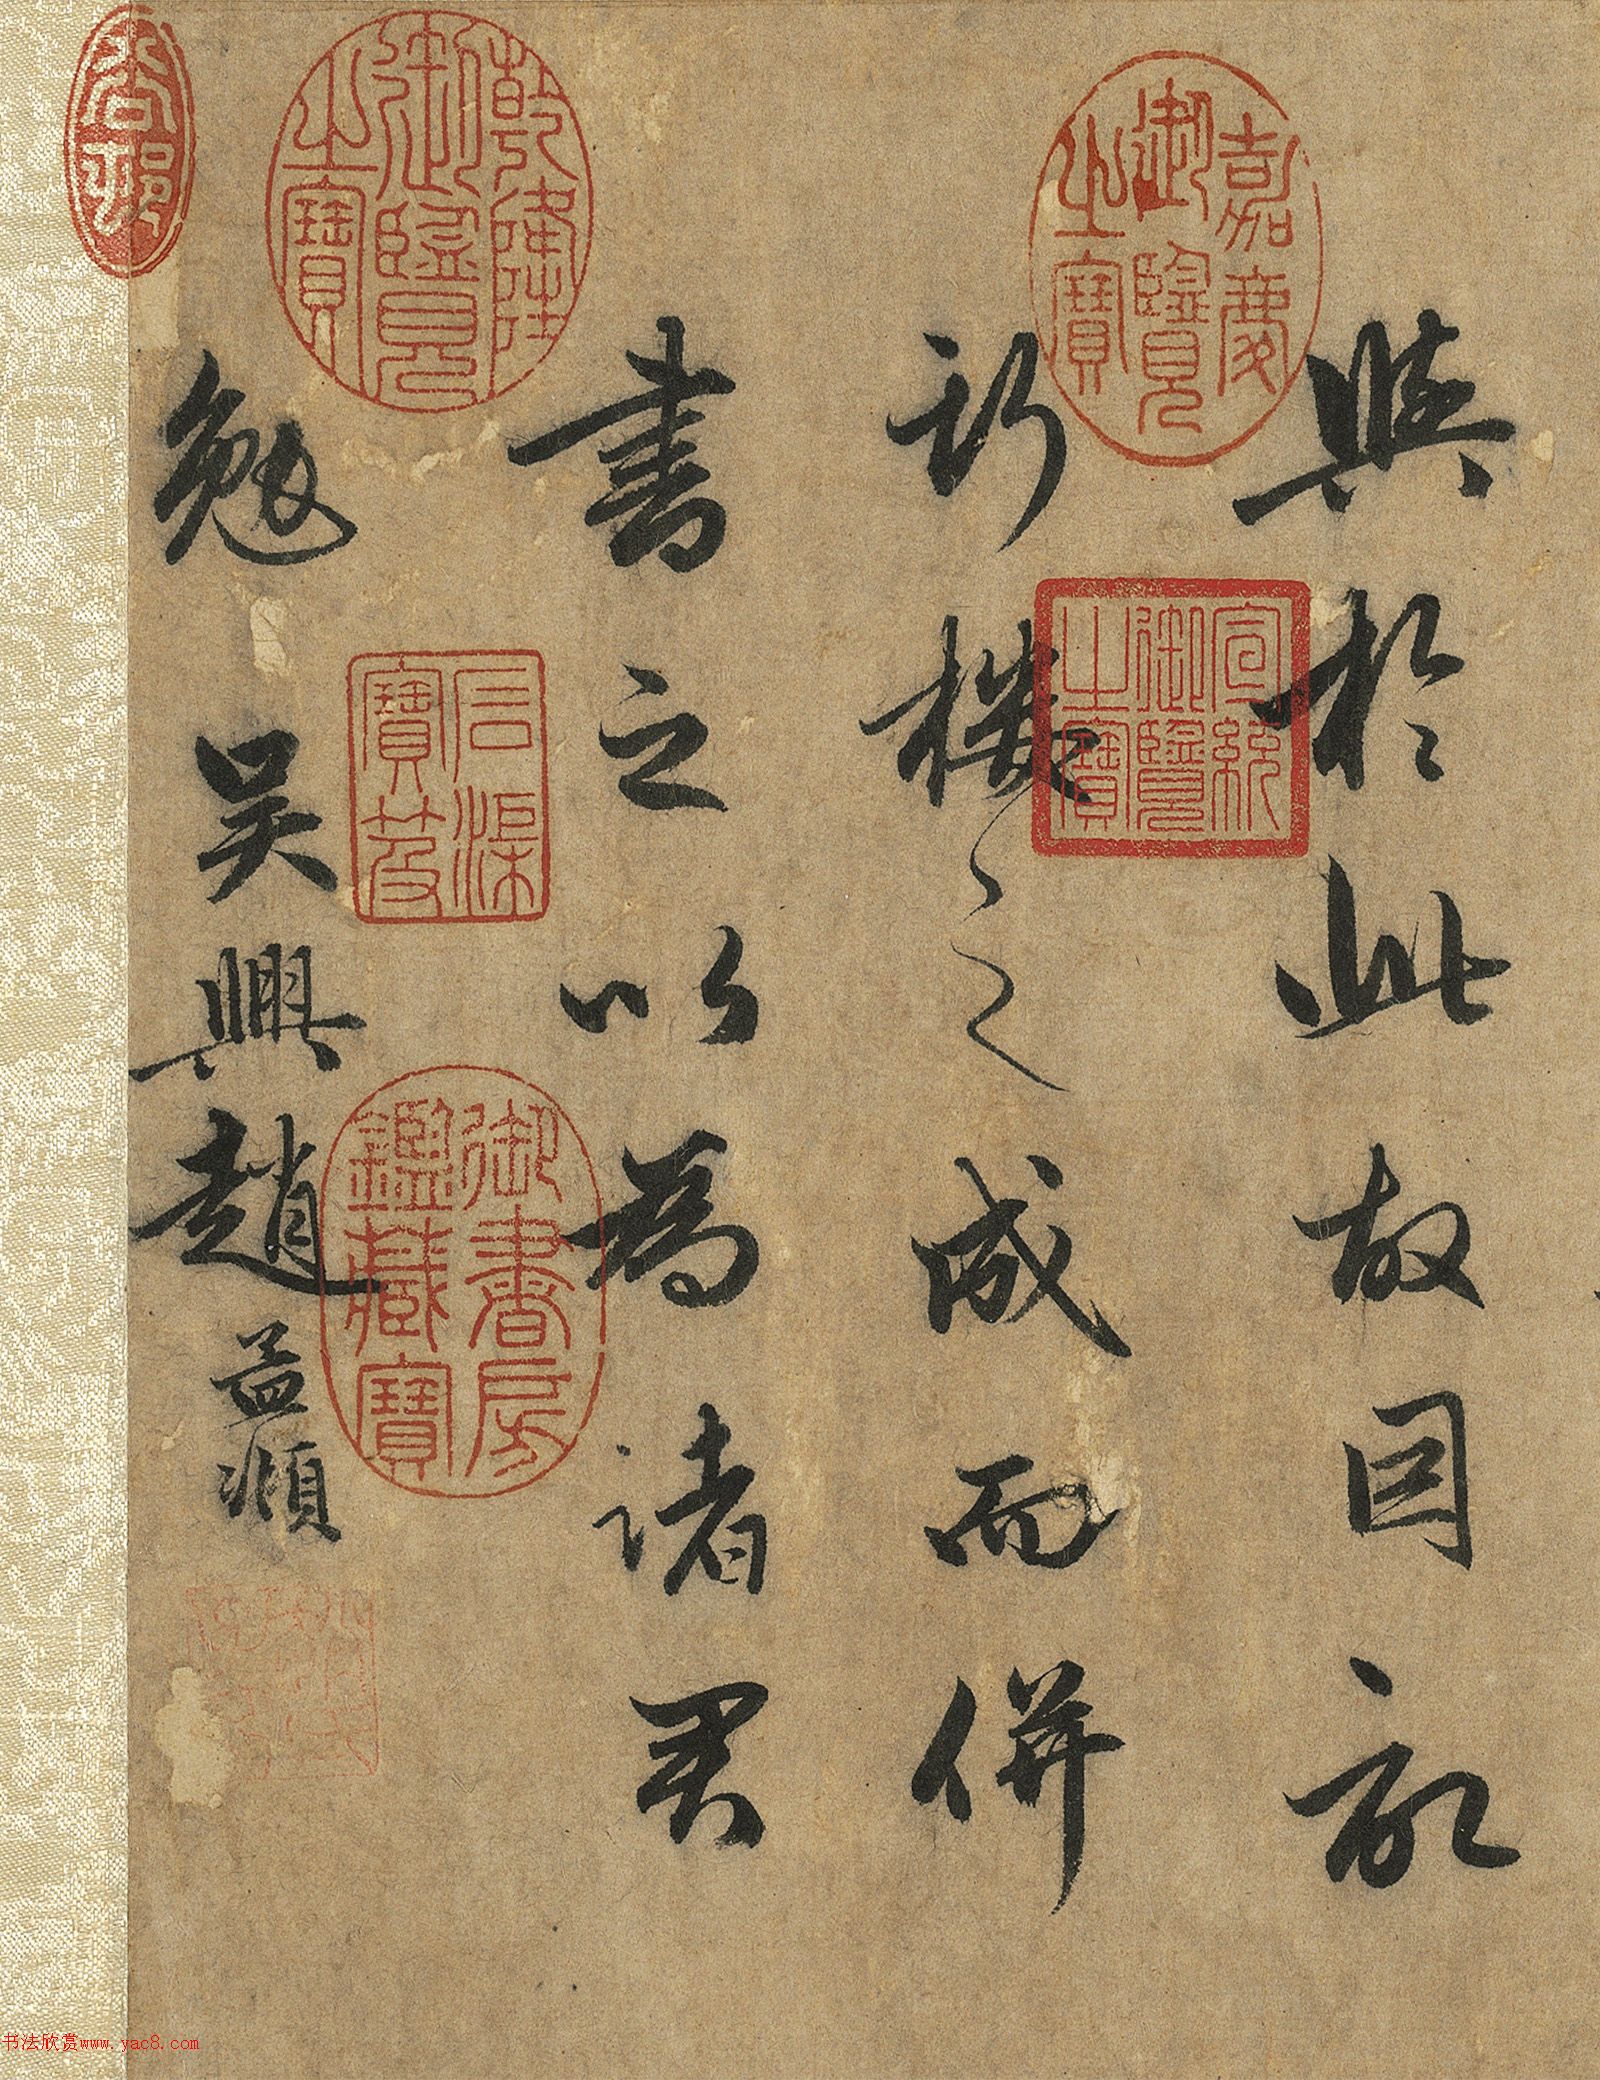 與於此故因
之成而併
書之以為諸君
勉吳興趙孟頫
嘉慶御覽之寶
宣統御覽之寶
乾隆御覽之寶
石渠寶笈
御書房鑑藏寶
书法欣赏www.yac8.com